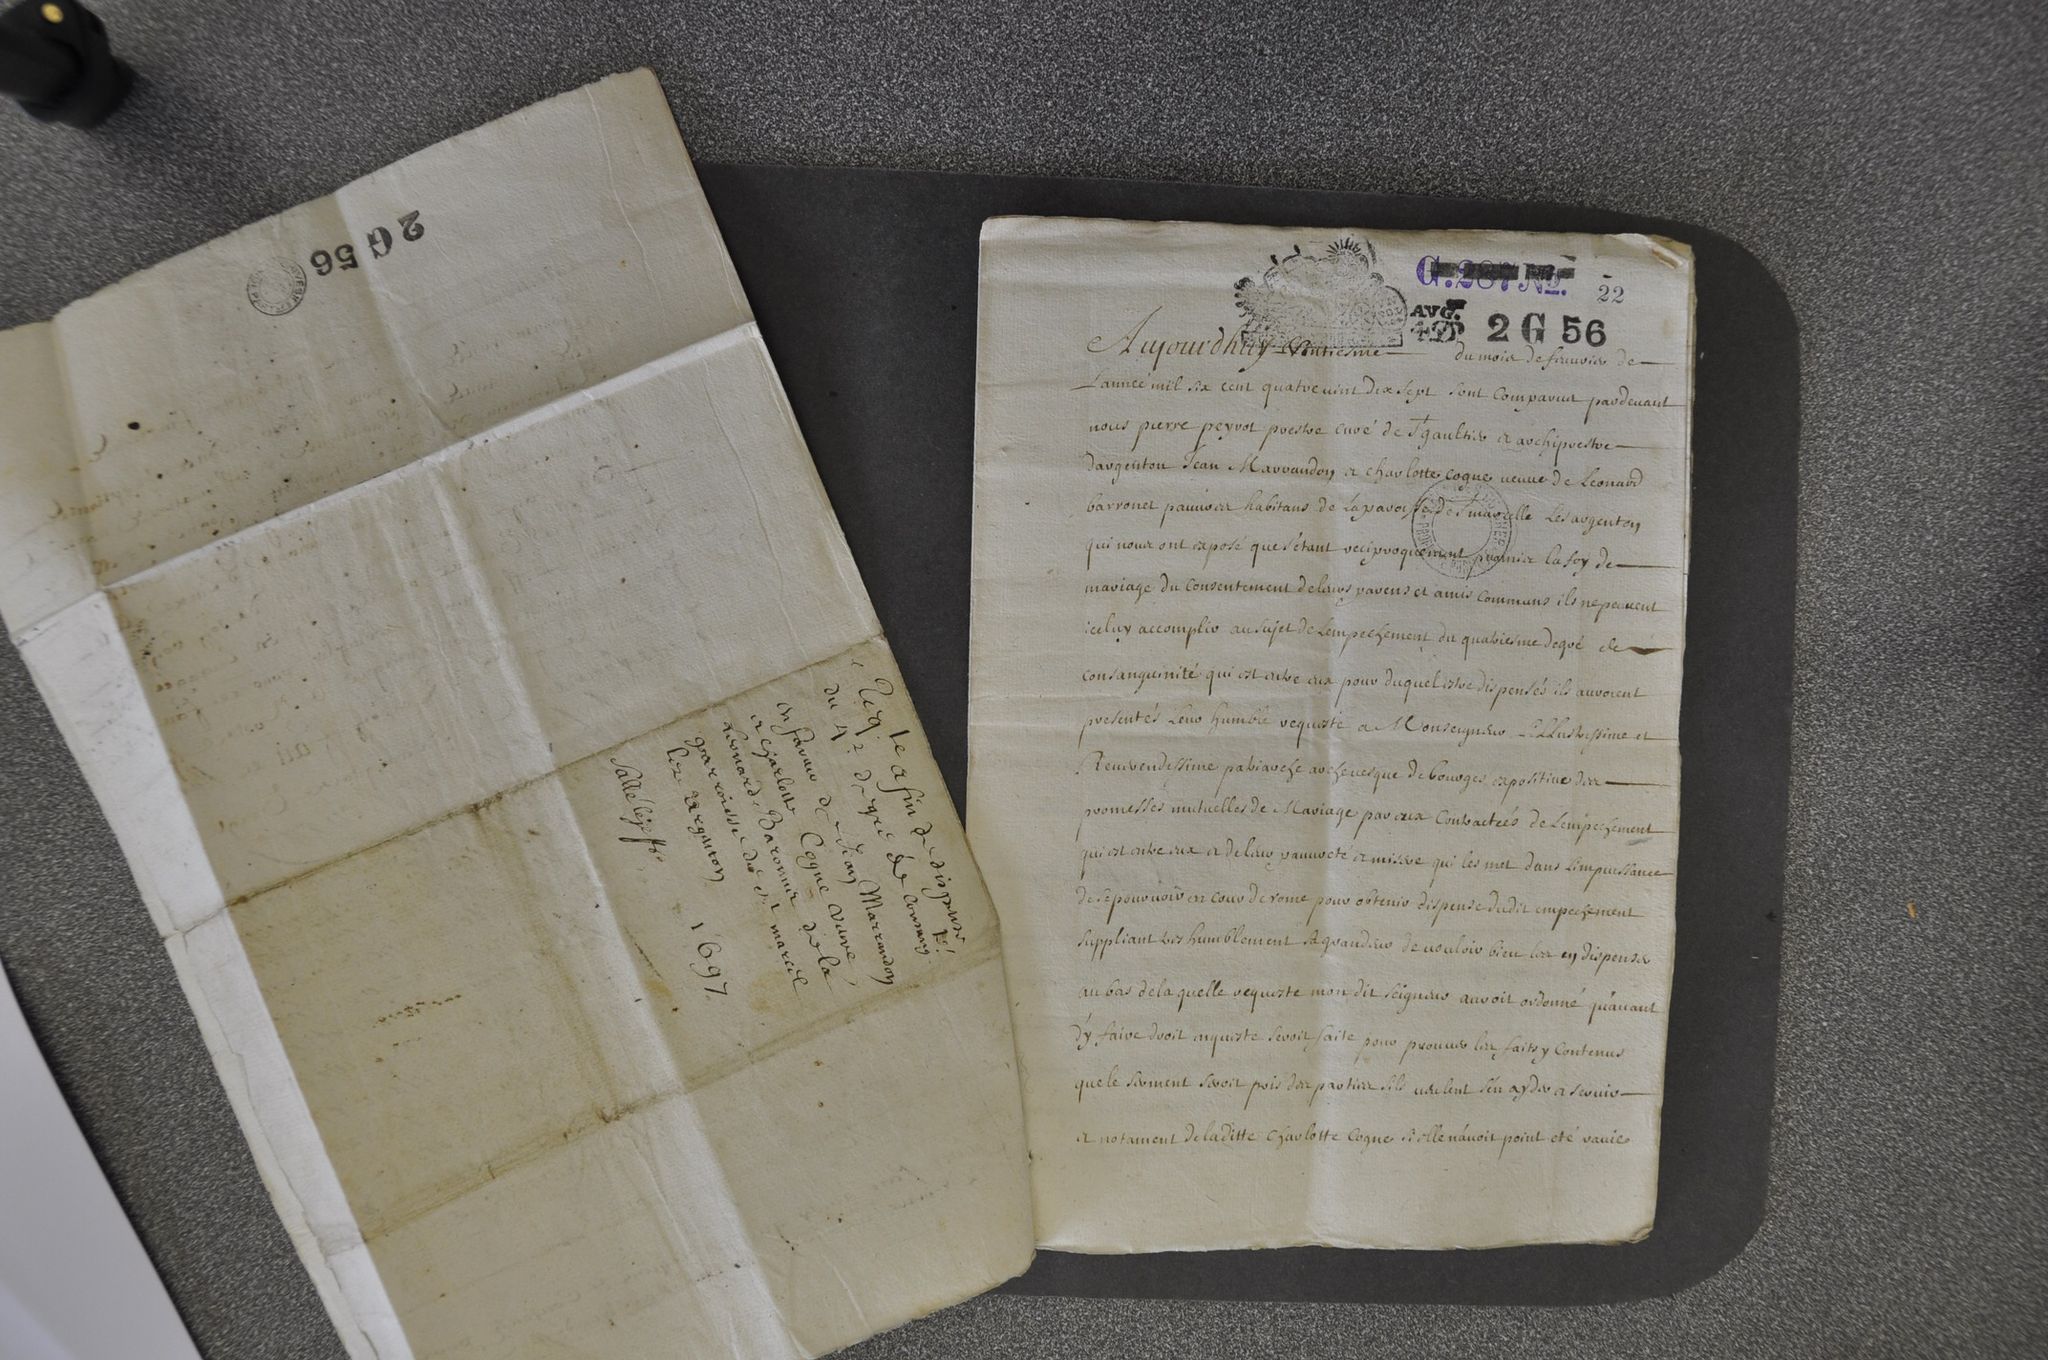 2 G 56
Reqte afin de dispense
du 4e degré de consang.
en faveur de Jean Marrandon
et Charlotte Cogne veuve
Leonard Baronnet de la
parroisse de St marcel
lez argenton
1697
G. 287 No.
22
AVG.
2 G 56
Aujourdhuy du mois de feuvrier de
Lannee mil six cent quatre vint dix sept sont comparus pardevant
nous pierre peyrot prestre curé de St gaultier et archiprestre
dargenton Jean Marrandon et charlotte cogne veuve de Leonard
barronet pauvres habitans de la paroisse de St marcelle Les argenton
qui nous ont exposé que sétant reciproquement promis la foy de
mariage du consentement de leurs parens et amis communs ils ne peuvent
iceluy accomplir au sujet de Lempechement du quatriesme degré de
consanguinité qui est entre eux pour duquel estre dispensés ils auroient
presentés leur humble requeste a Monseigneur Illustrissime et
Reverendissime patriarche archevesque de bourges expositive des
promesses mutuelles de Mariage par eux Contractées de Lempechement
qui est entre eux et de leur pauvreté et misere qui les met dans Limpuissance
de se pourvoir en cour de rome pour obtenir dispense dudit empechement
suppliant tres humblement sa grandeur de vouloir bien les en dispenser
au bas de la quelle requeste mon dit seigneur auroit ordonné quavant
dy faire droit enqueste seroit faite pour prouver les faits y Contenus
que le serment seroit pris des parties sils veulent sén ayder et servir
et notament de laditte Charlotte Cogne si elle návoit point eté ravie